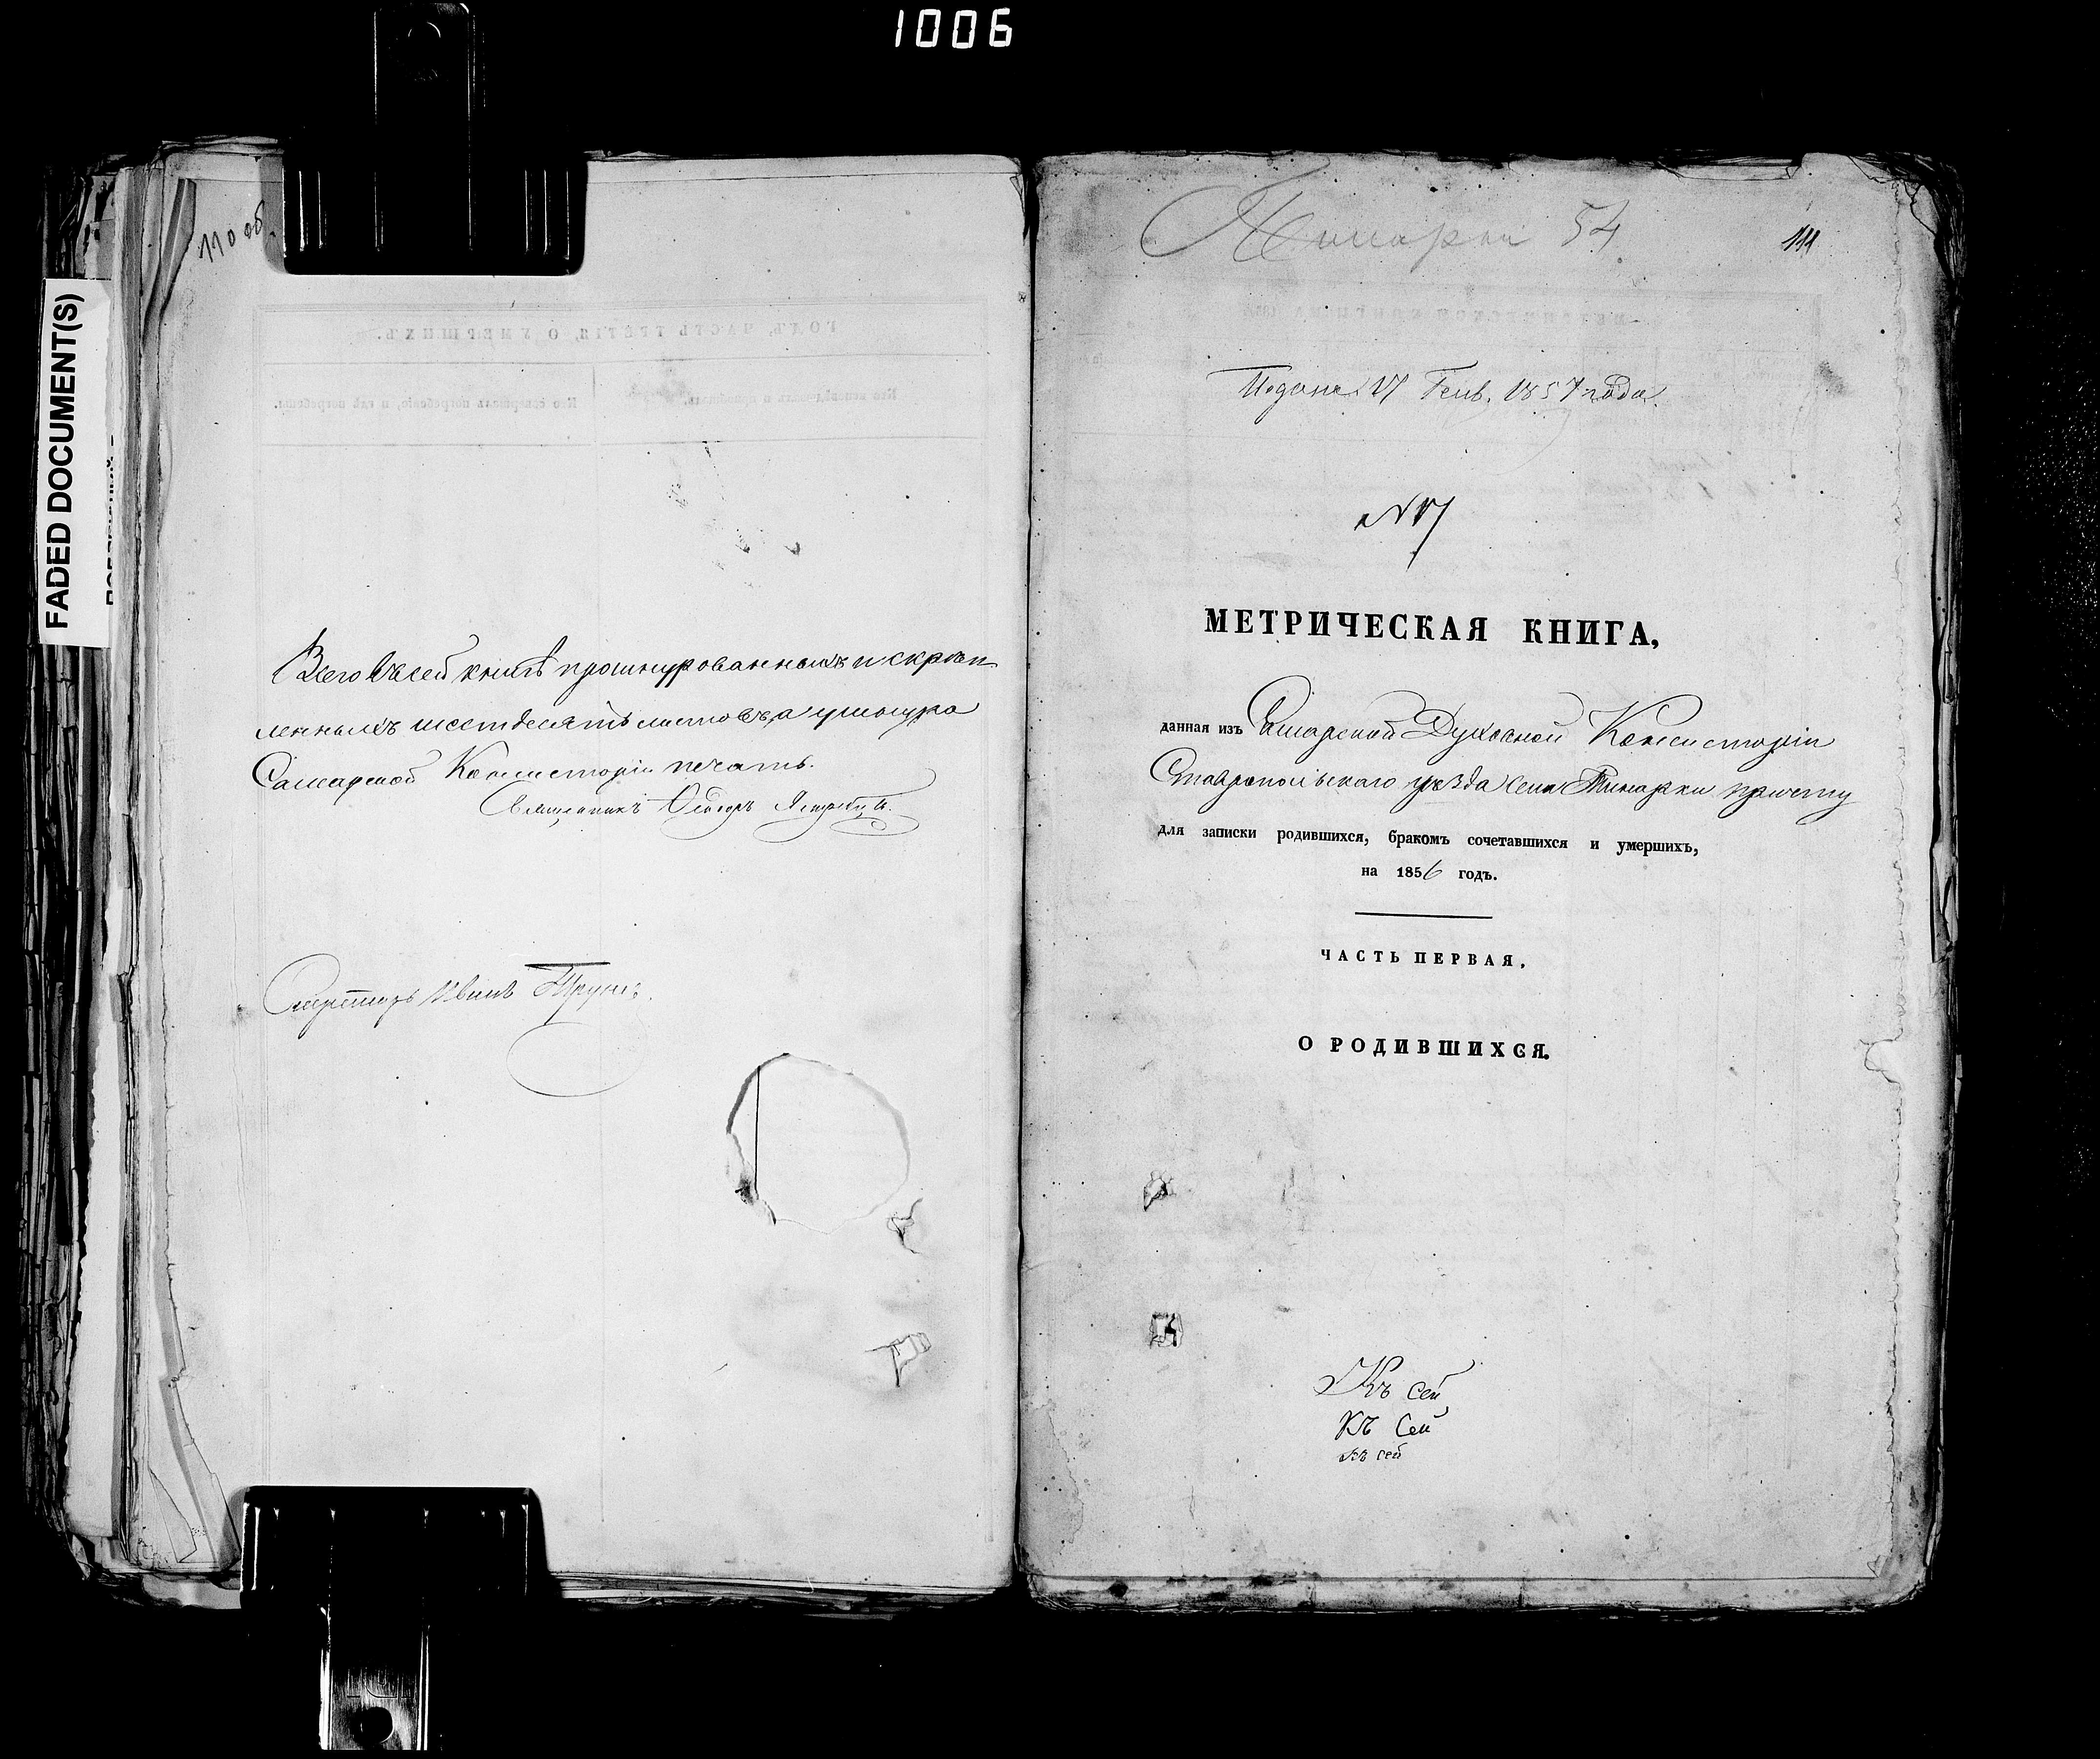 1006
FADED DOCUMENT(S)
110 об.
ГОДЪ, ЧАСТЬ ТРЕТІЯ, О УМЕРШИХЪ.
Кто совершалъ погребеніе, и гдѣ погребены.
Всего въ сей книгѣ прошнурованныхъ и скрѣп
ленныхъ шестдесятъ листовъ, а у шнура
Самарской Консисторіи печать.
Священникъ
Секретарь Иванъ
Тинарки 54
111
Подана 17 Генв. 1857 года.
№ 17
МЕТРИЧЕСКАЯ КНИГА,
данная изъ Самарской Духовной Консисторіи
Ставропольскаго уѣзда села Тинарки причту
для записки родившихся, бракомъ сочетавшихся и умершихъ,
на 1856 годъ.
ЧАСТЬ ПЕРВАЯ,
О РОДИВШИХСЯ.
Къ сей
Къ Сей
Къ сей